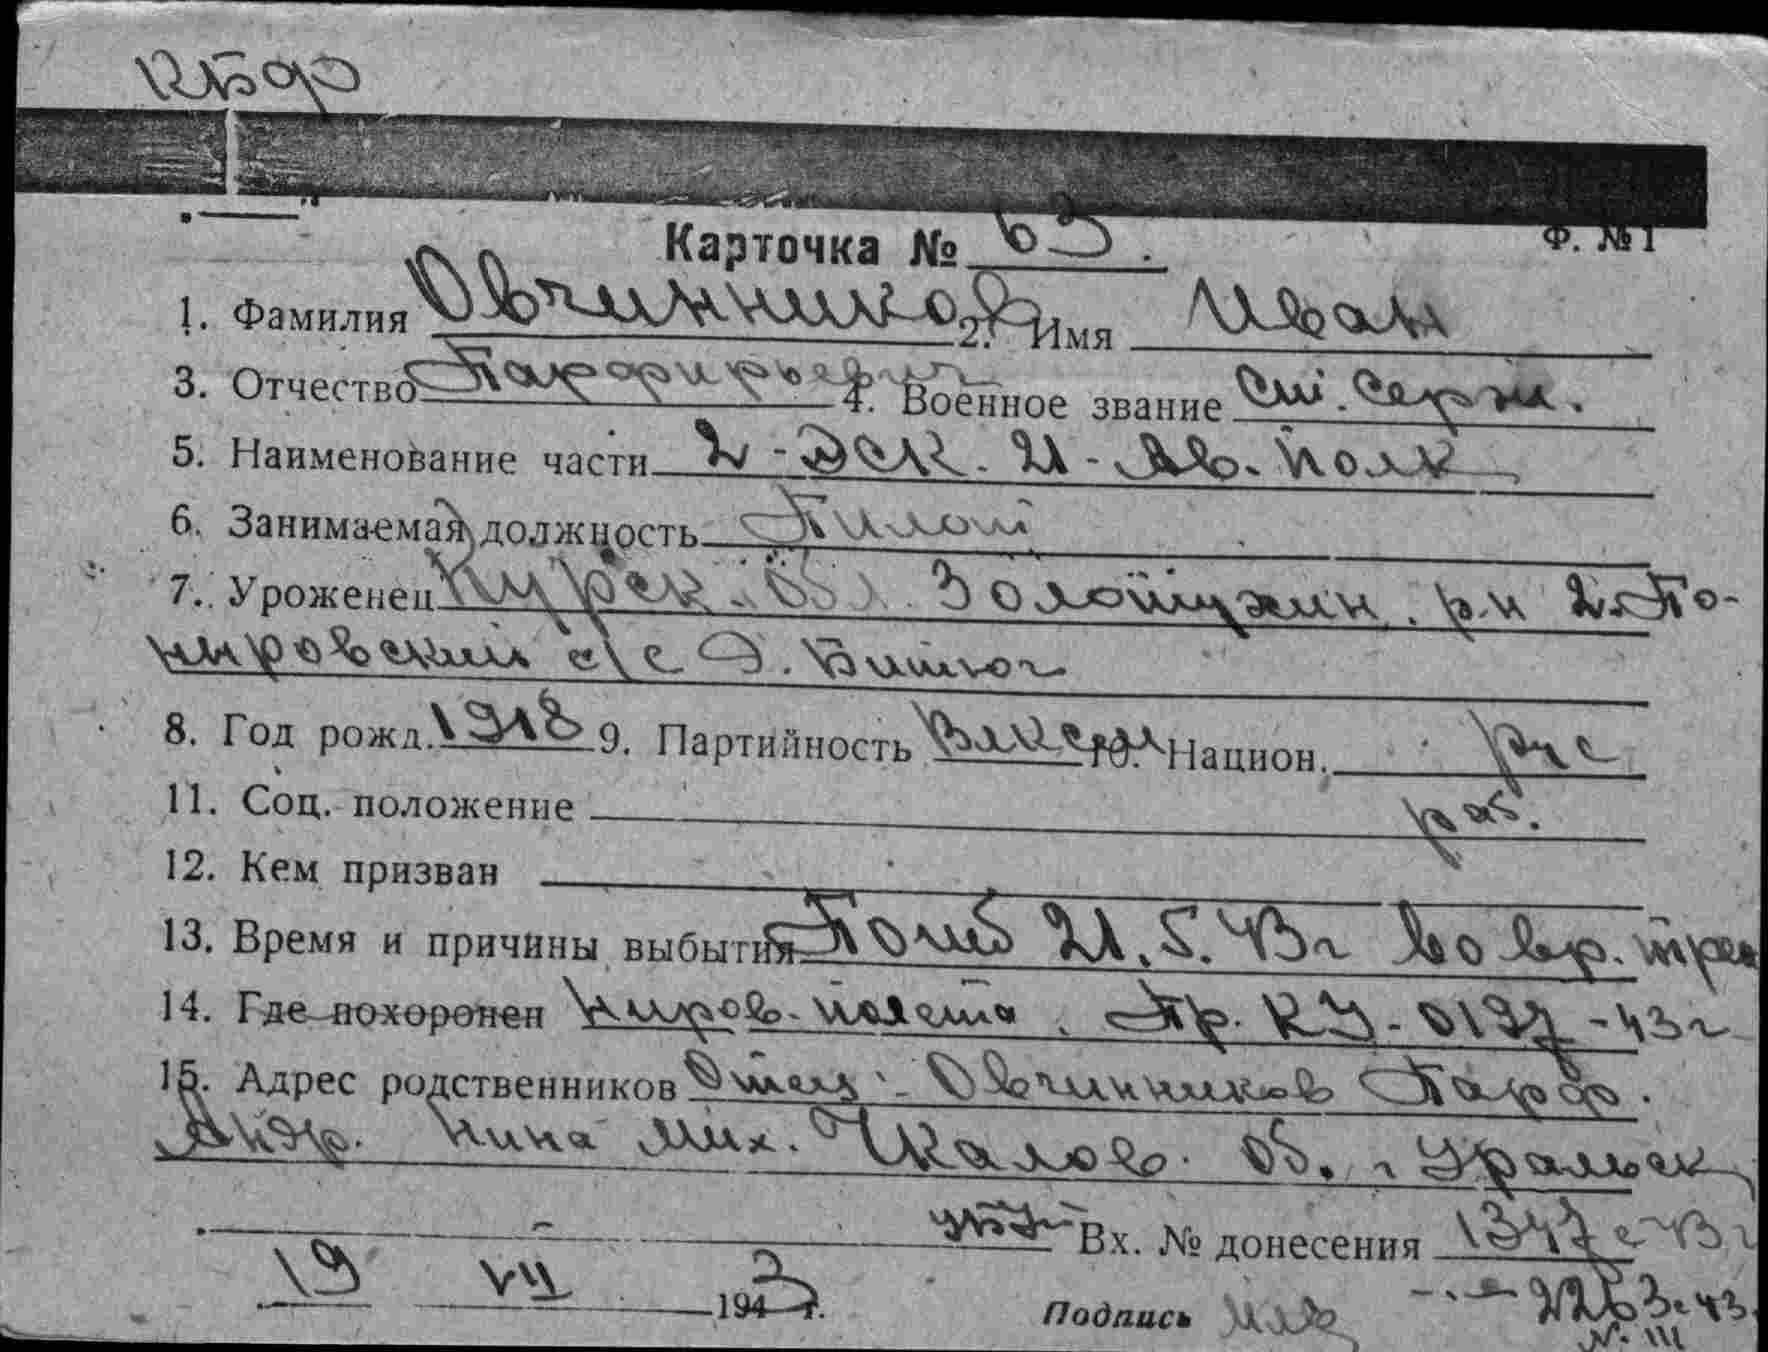 Карточка № 63. Ф. № 1
1. Фамилия Овчинников 2. Имя Иван
3. Отчество Парфирьевич 4. Военное звание Ст. Серж.
5. Наименование части полк
6. Занимаемая должность Пилот
7. Уроженец Курск. об. Золотухин. р-н 2-По-
с/с Д.
8. Год рожд. 1918 9. Партийность 10. Национ. рус
11. Соц. положение раб.
12. Кем призван
13. Время и причины выбытия Погиб 21.5.43г во вр. трен
14. Где похоронен полета. Пр.
15. Адрес родственников Отец - Овчинников Парф.
Андр. Мих. Чкалов. об. г Уральск
Вх. № донесения 1347с-43г
19 VII 1943 г. Подпись